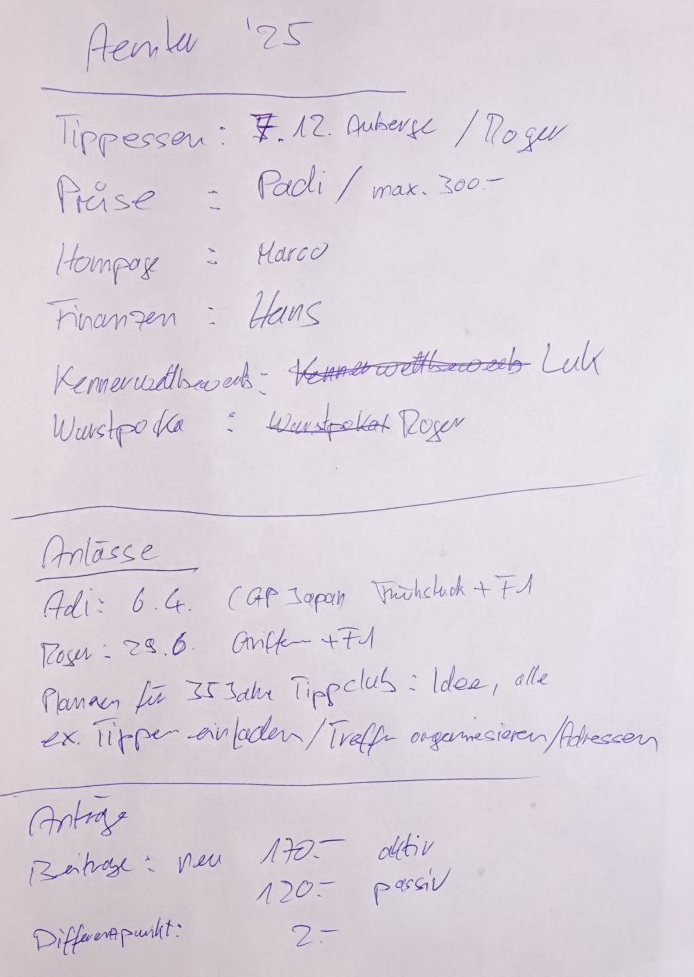 Aemter '25
Tippessen: 7.12. Auberge / Roger
Preise : Padi / max. 300.-
Hompage : Marco
Finanzen : Hans
Kennerwettbewerb: Kennerwettbewerb Luk
Wurstpoka : Wurstpokal Roger
Anlässe
Adi: 6.4. (GP Japan Frühstück + F1
Roger: 29.6. Griffen + F1
Planen für 35 Jahre Tippclub: Idee, alle
ex. Tipper einladen / Treffen organiesieren / Adressen
Anträge
Beiträge: neu 170.- aktiv
120.- passiv
Differenzpunkt: 2.-